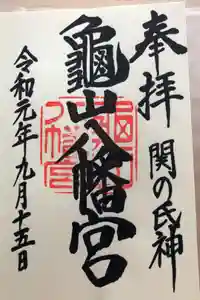 奉拝
関の氏神
龜山八幡宮
令和元年九月十五日